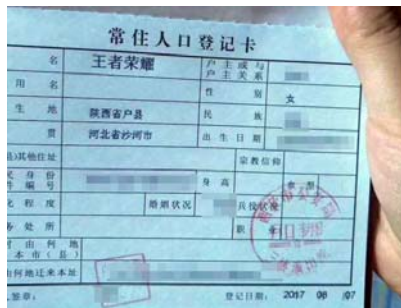 常住人口登记卡
名 王者荣耀 户主或与户主关系
用 名 性 别 女
生 地 陕西省户县 民 族
贯 河北省沙河市 出生日期
其他住址 宗教信仰
身份 编号 身高 血型
程度 婚姻状况 兵役状况
处所 职 业
由何地 本市(县)
由何地迁来本址
签章: 登记日期: 2017 08 /07